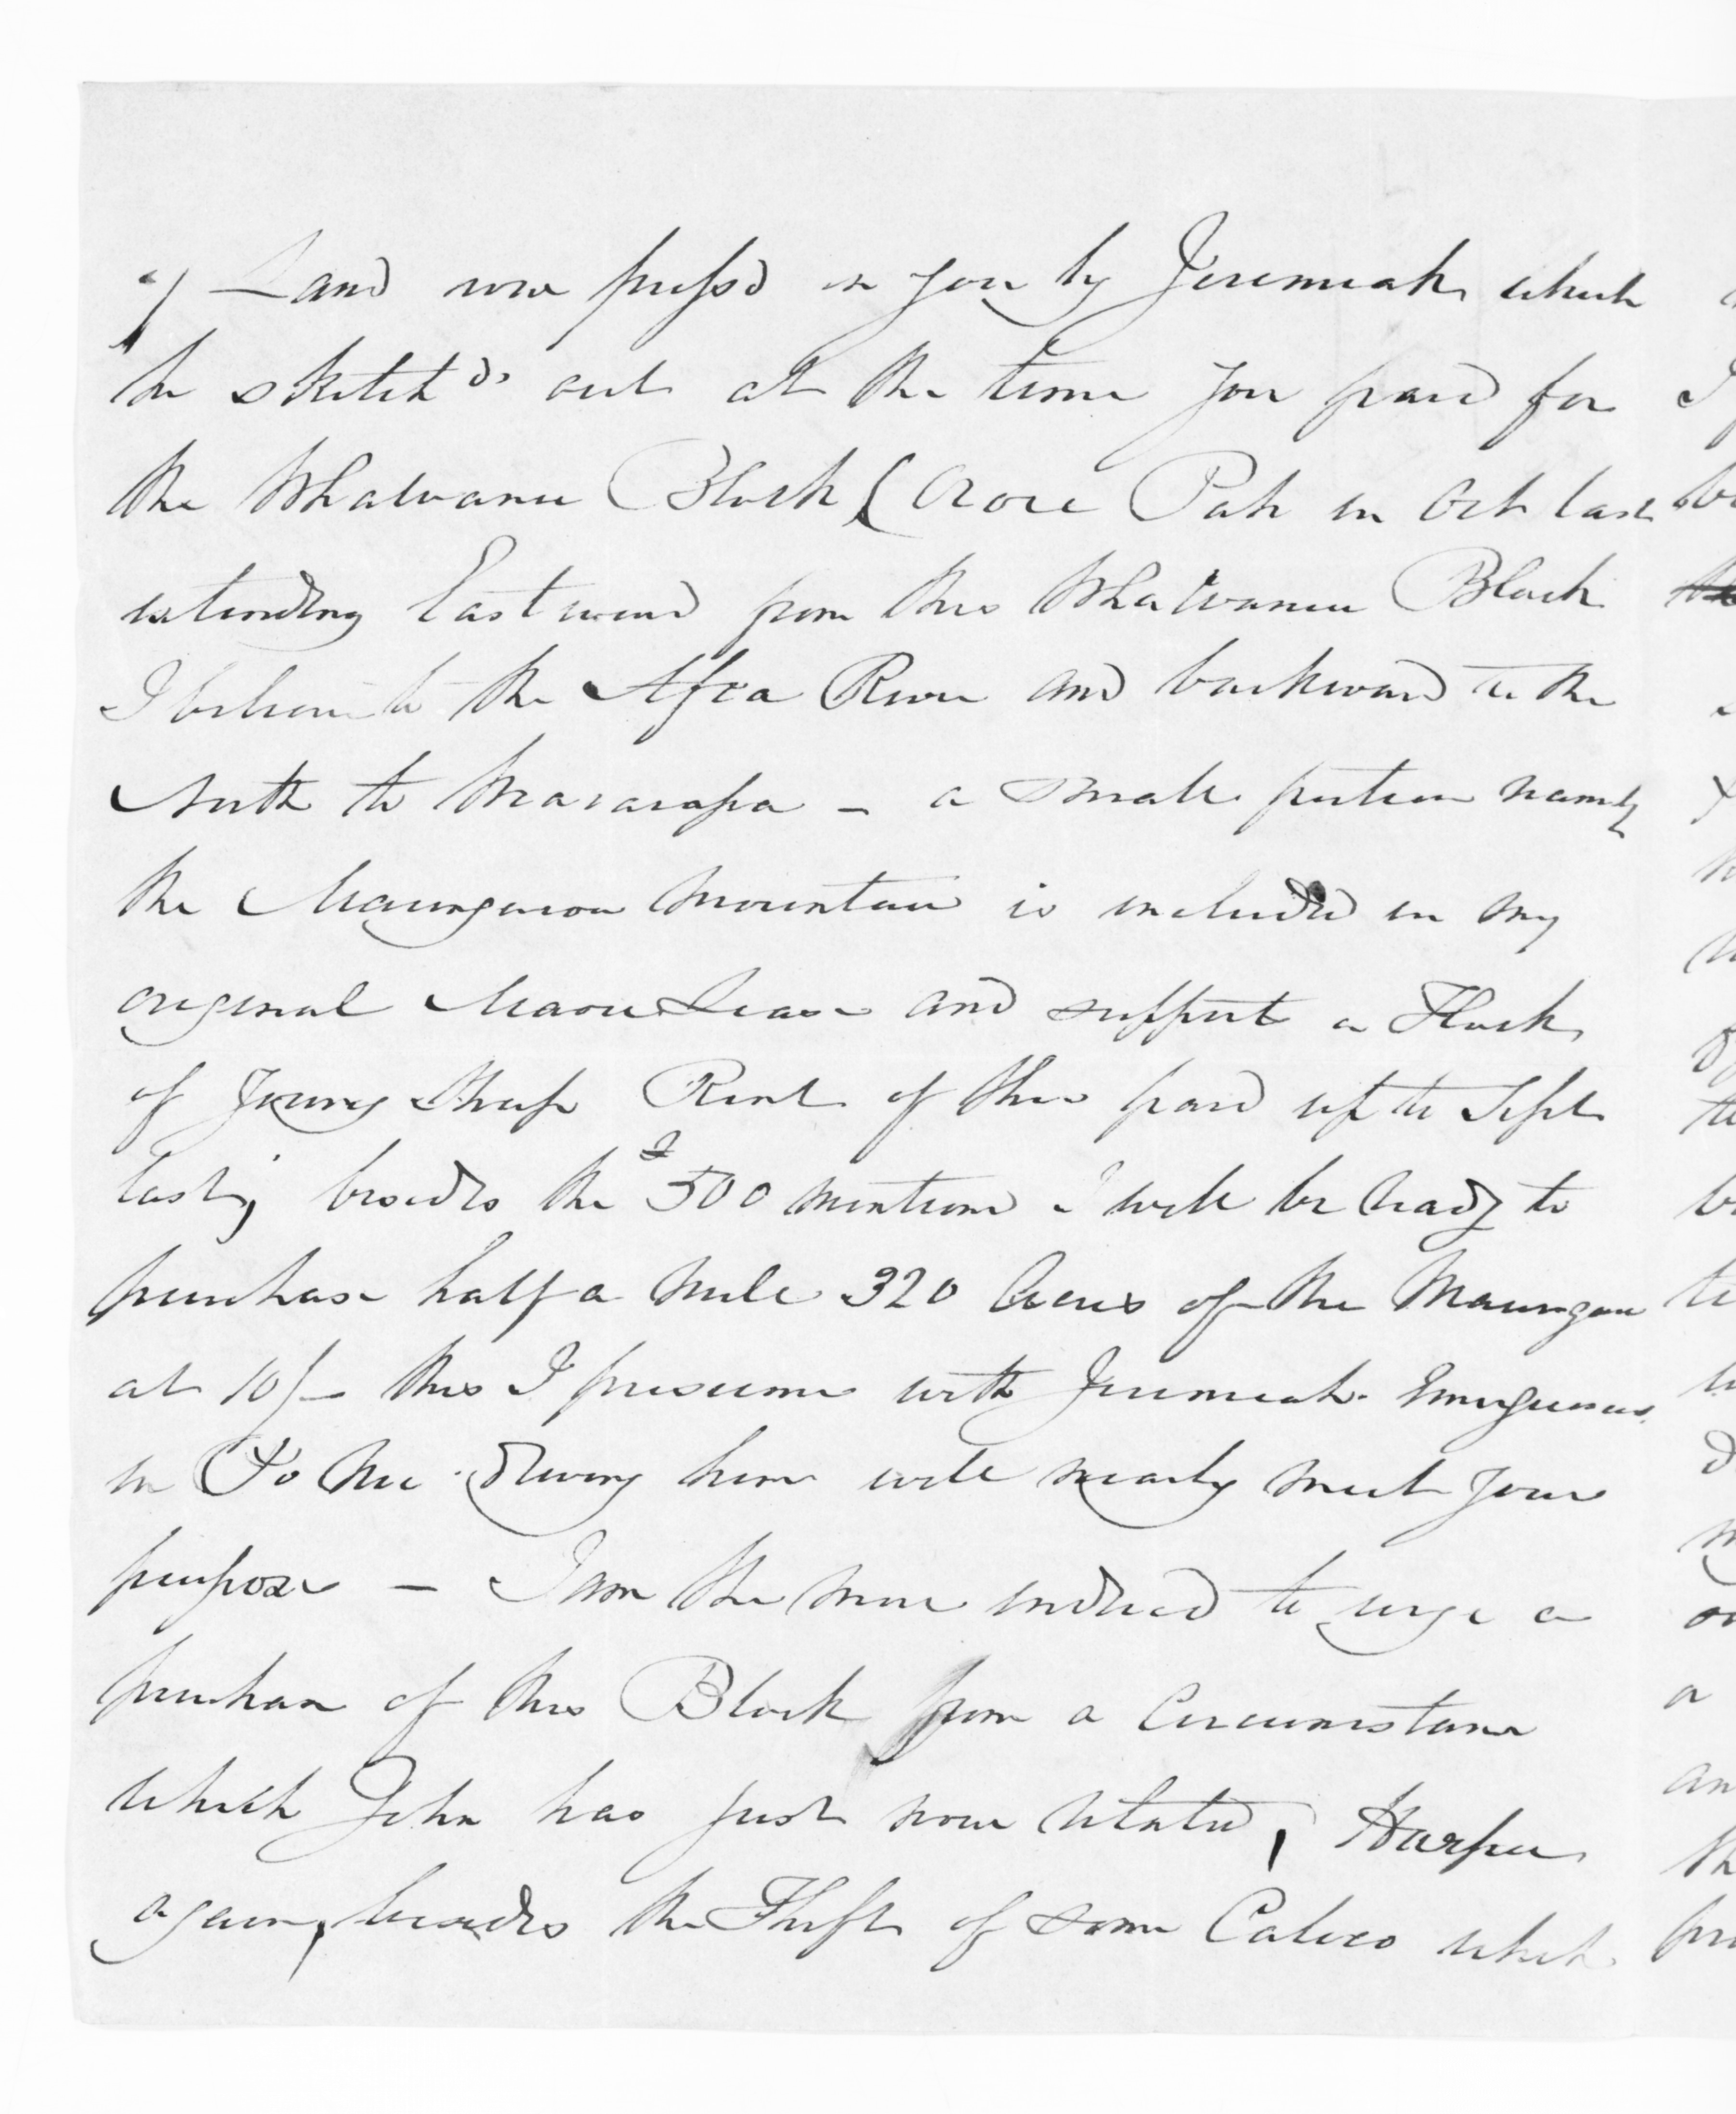 of Land now press'd on you by Jeremiah which
he sketch'd out at the time you paid for
the Whatuanu Block (Aorere Pah in Oct last
extending Eastward from this Whatuanu Block
I believe to the River and backward to the
North to a small portion namely
the Maungarau mountain is included in my
original Maori Lease and support a Flock
of Young Sheep Rent of this paid up to Sept
last, besides the £500 mention I will be ready to
purchase half a mile 320 Acres of the Maungarau
at 10/- this I presume with Jeremiah
in driving him will nearly meet your
purpose – I am the more induced to urge a
purchase of this Block from a Circumstance
which John has just now related, Harper
again, besides the Theft of some Calico which